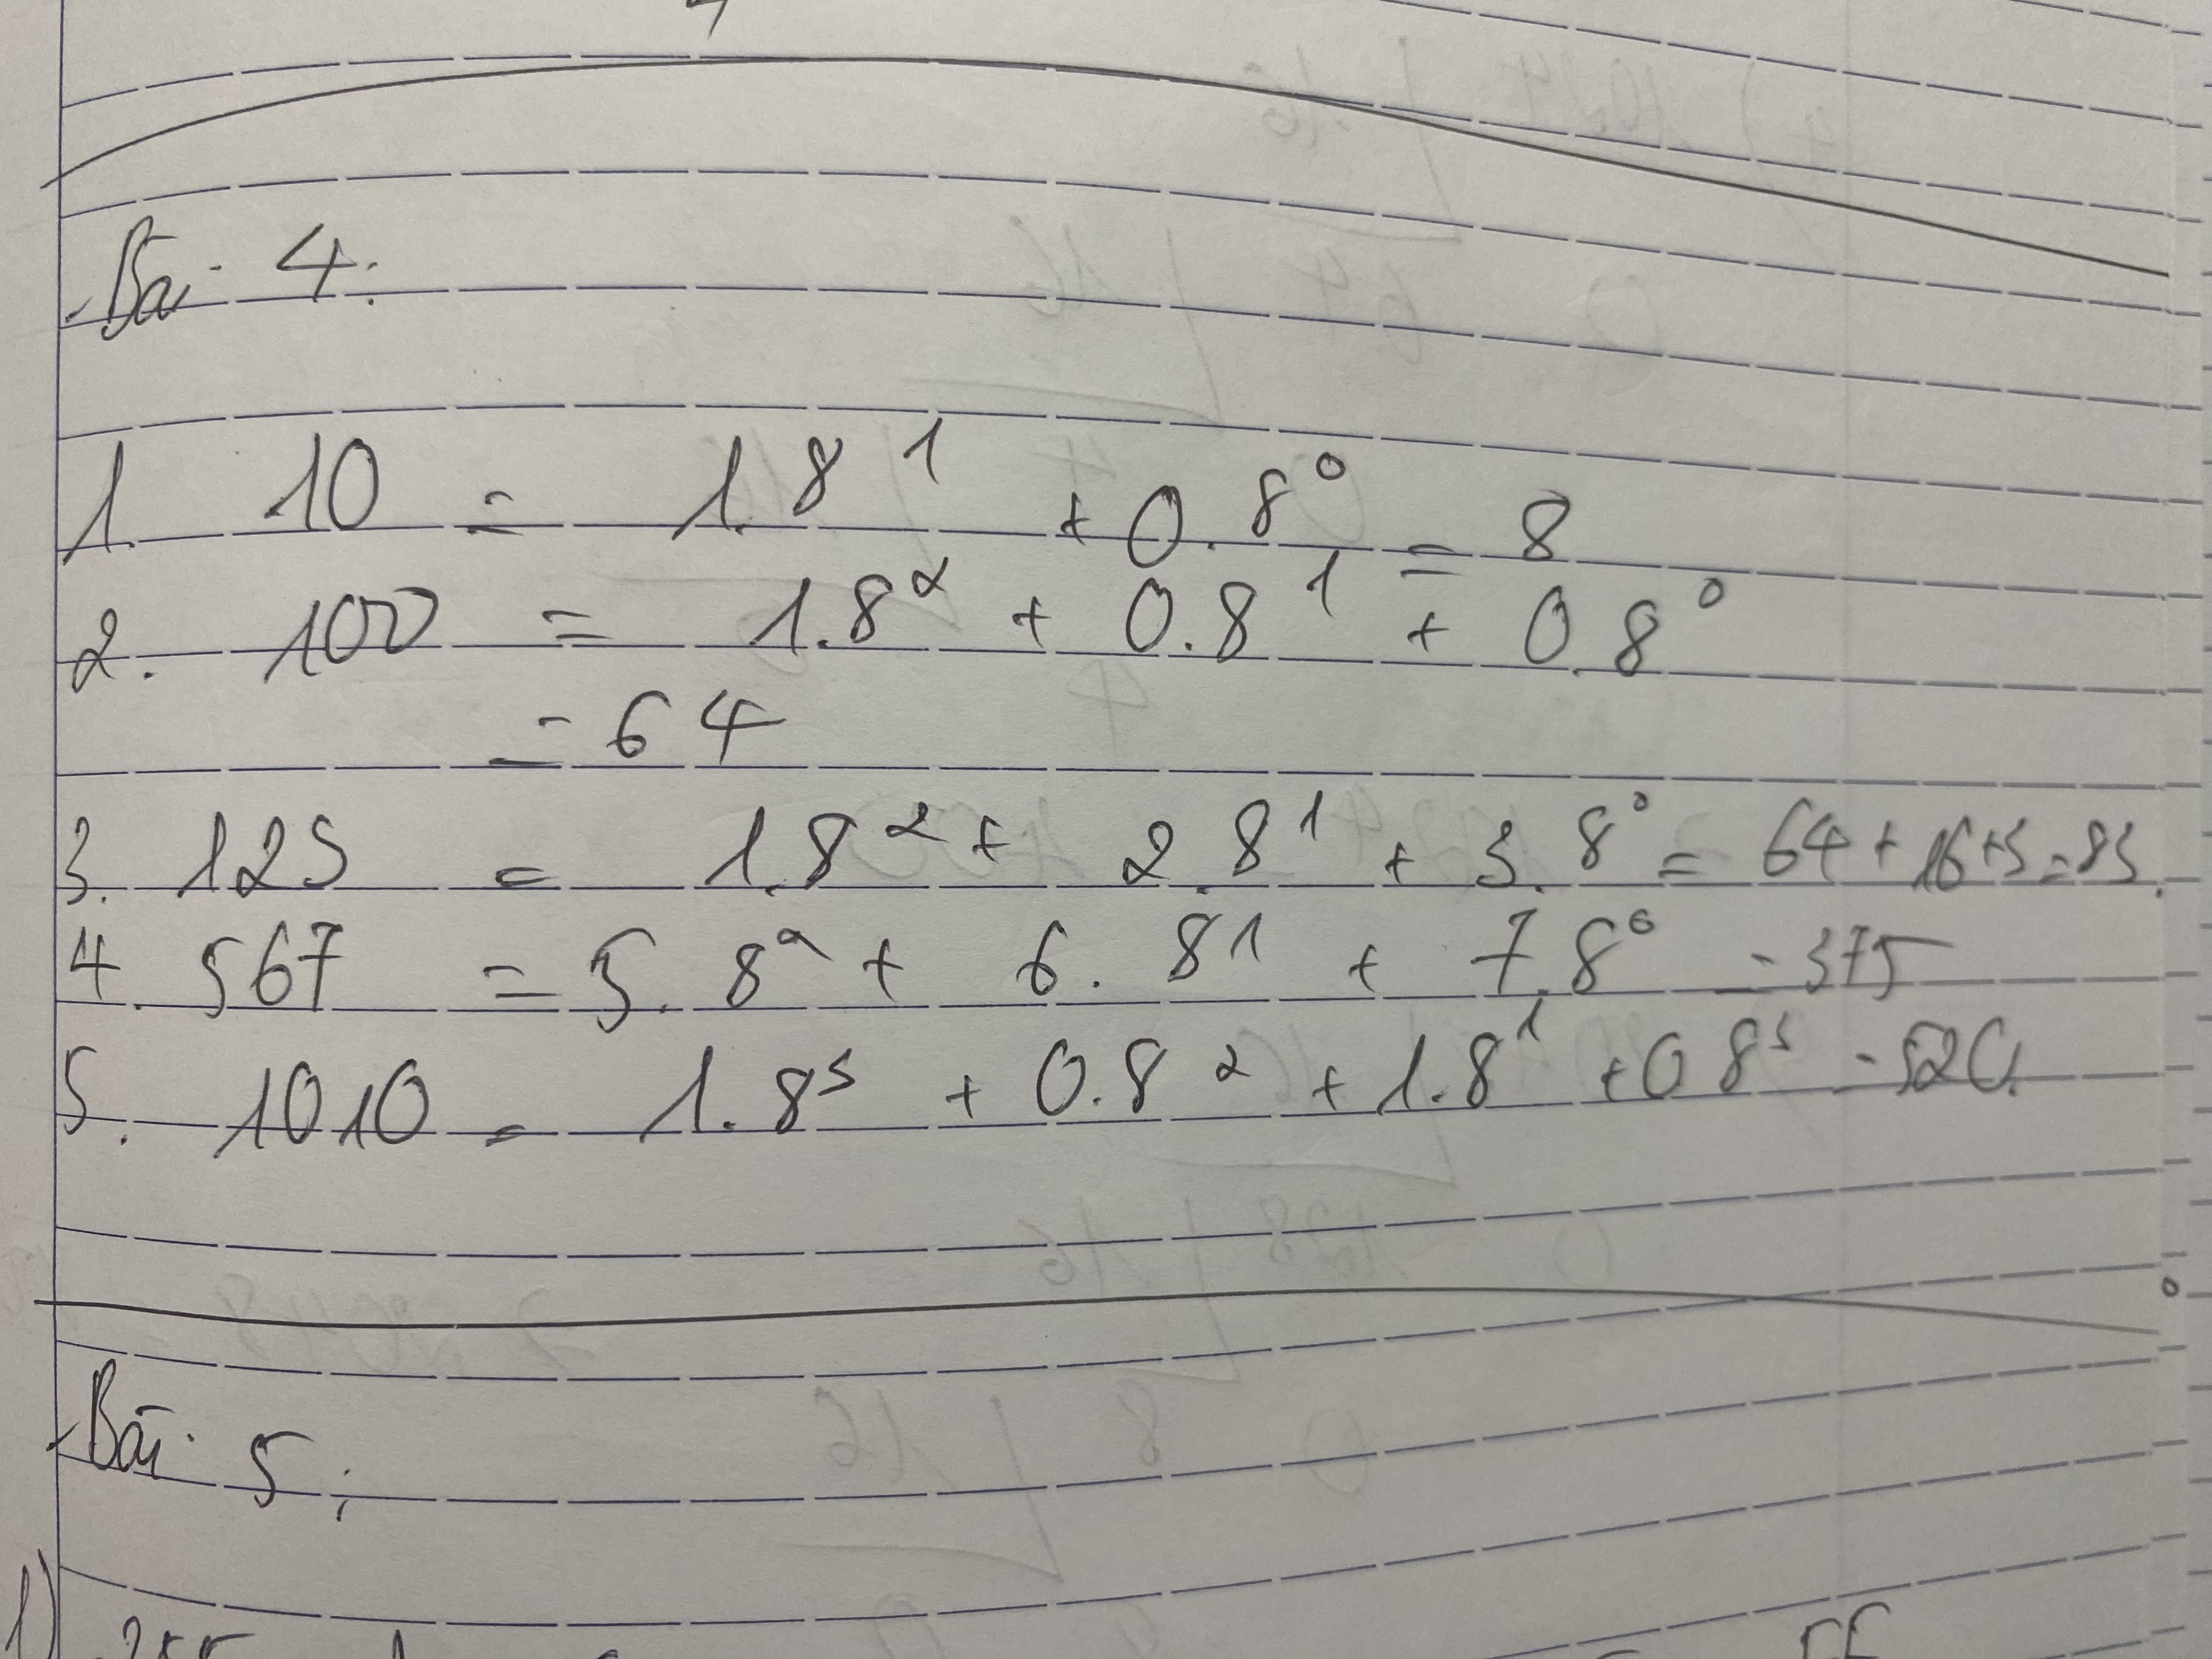 Bài 4:
1. 10 = 1.8¹ + 0.8⁰ = 8
2. 100 = 1.8² + 0.8¹ + 0.8⁰
= 64
3. 123 = 1.8² + 2.8¹ + 3.8⁰ = 64 + 16 + 3 = 83
4. 567 = 5.8² + 6.81 + 7.8⁰ = 375
5. 1010 = 1.8³ + 0.8² + 1.8¹ + 0 8⁰ = 520
Bài 5:
1)